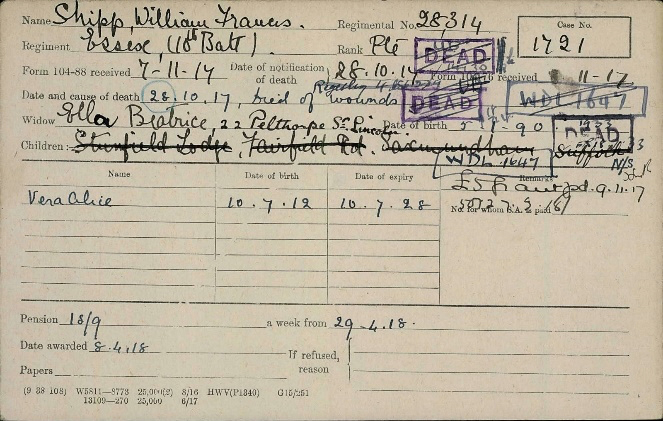 Name Shipp, William Francis. Regimental No. 28,314 Case No.
Regiment Essex, (10th Batt). Rank Pte 1721
DEAD
Form 104-88 received 7-11-17 Date of notification of death 28.10.17 Form 104-76 received 11-17
Date and cause of death 28.10.17, Died of wounds DEAD WDL 1647
Widow Ella Beatrice, 22 Pelthorpe St. Lincoln Date of birth 5.1.90 DEAD
Children: Fairfield Rd. Saxmundham Suffolk
WDL 1647 N/S
Name Date of birth Date of expiry Remarks
£5 Grant pd. 9.11.17
Vera Alice 10.7.12 10.7.28 No. for whom S.A. is paid
Pension 18/9 a week from 29-4.18.
Date awarded 8.4.18 If refused, reason
Papers
(9 38 108) W5811—8778 25,000(2) 3/16 HWV(P1340) G15/251
13109—270 25,000 6/17